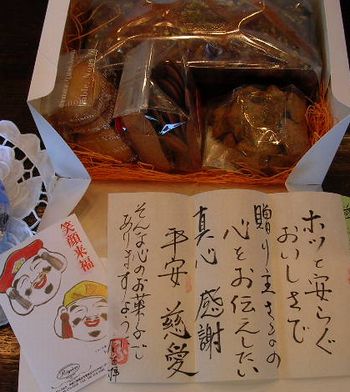 ホッと安らぐ
おいしさで
贈り主さまの
心をお伝えしたい
真心 感謝
平安 慈愛
そんな心のお菓子で
ありますよう
笑顔来福